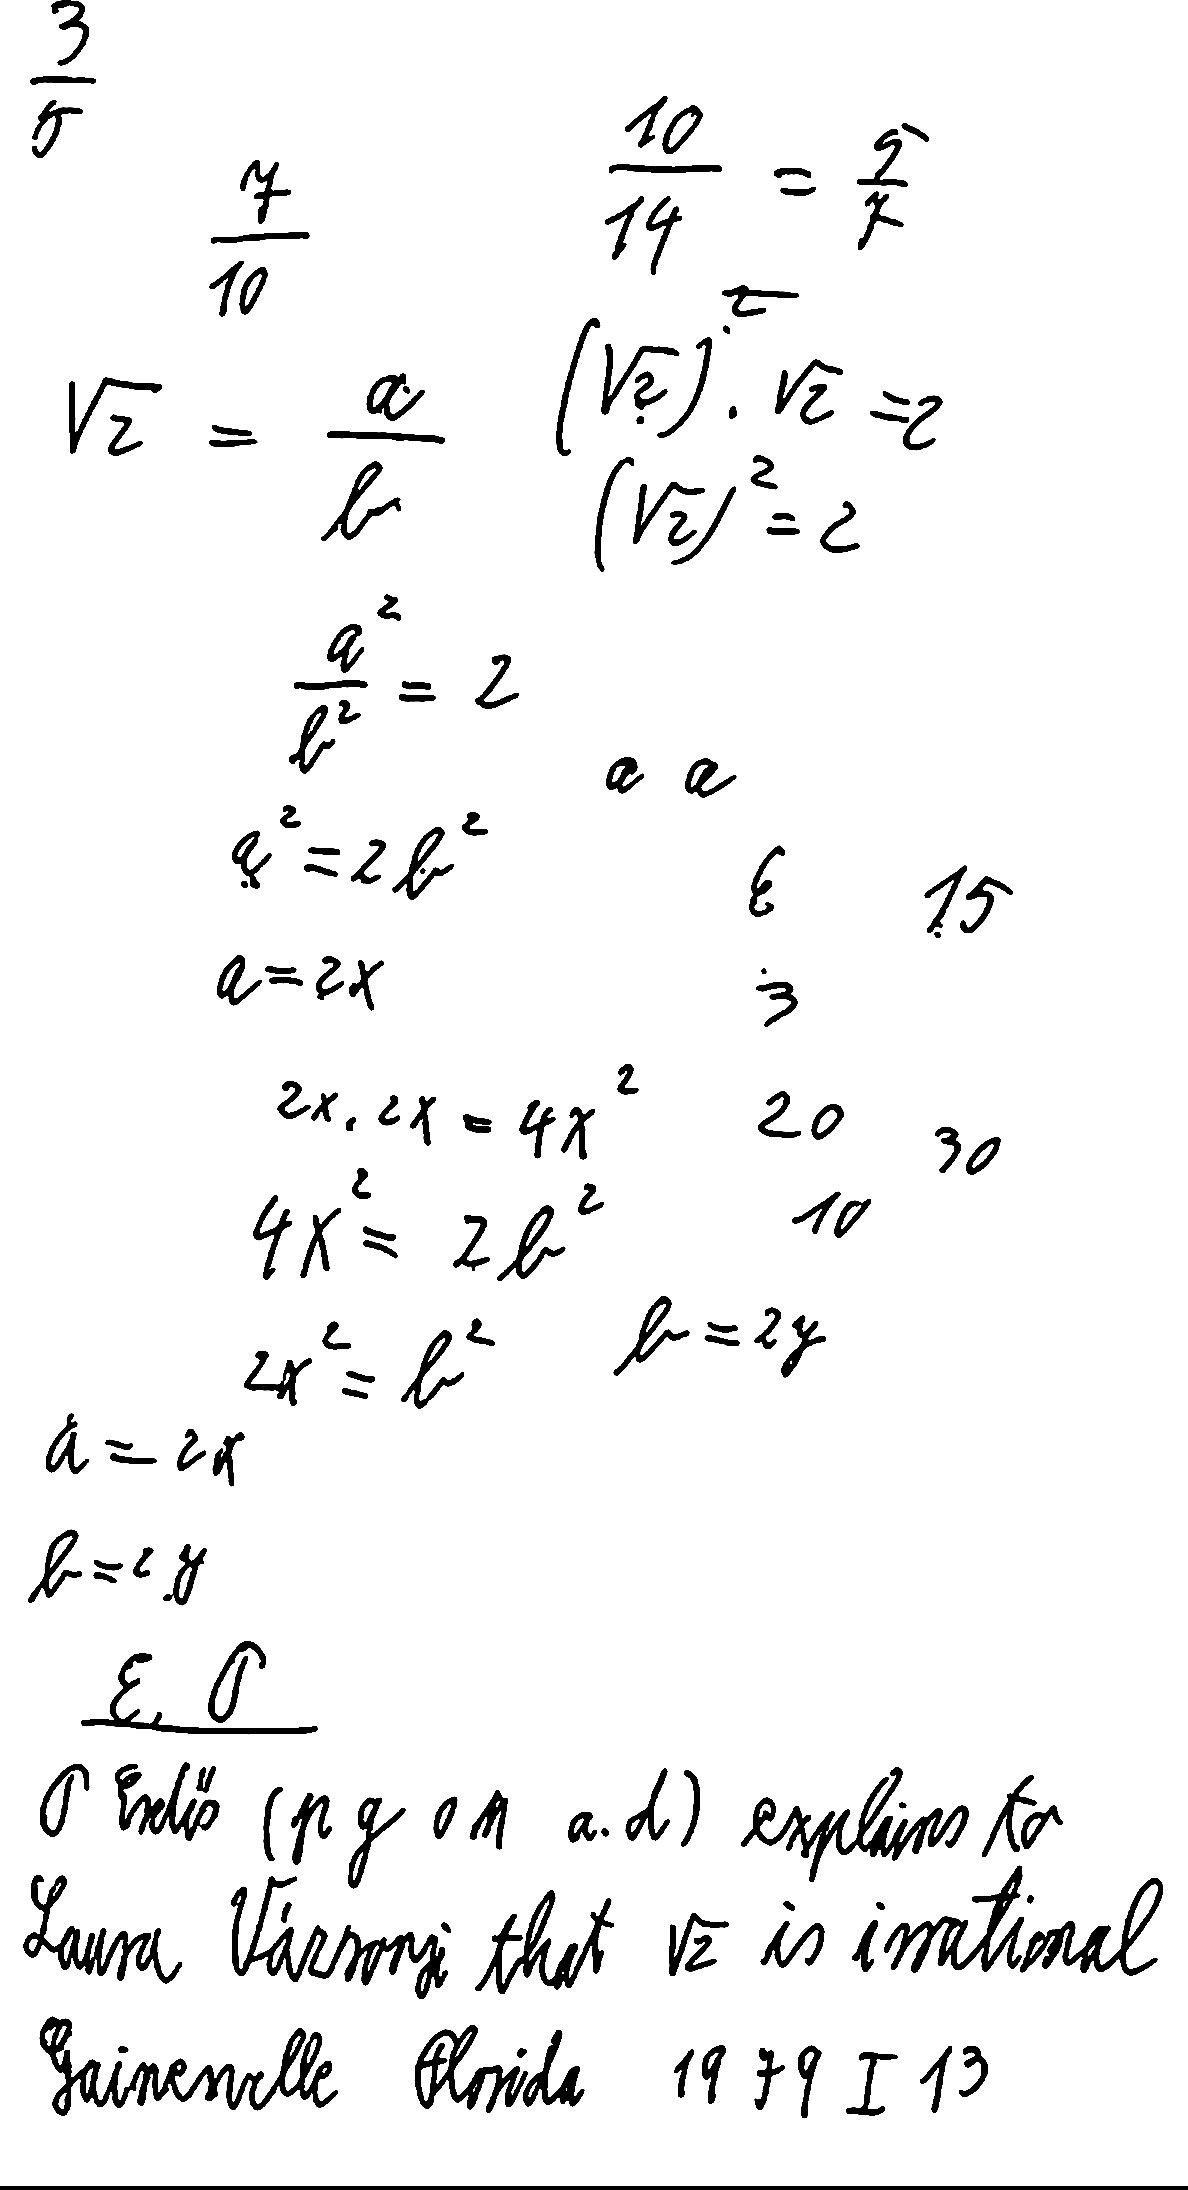 3/5
7/10
10/14 = 5/7
√2 = a/b
(√2)² · √2 = 2
(√2)² = 2
a²/b² = 2
a a
a² = 2b²
6 15
a = 2x
3
2x . 2x = 4x²
20 30
4x² = 2b²
10
2x² = b²
b = 2y
a = 2x
b = 2y
E. P
P Erdős (p g o m a.d) explains to
Laura Vázsonyi that √2 is irrational
Gainesville Florida 1979 I 13